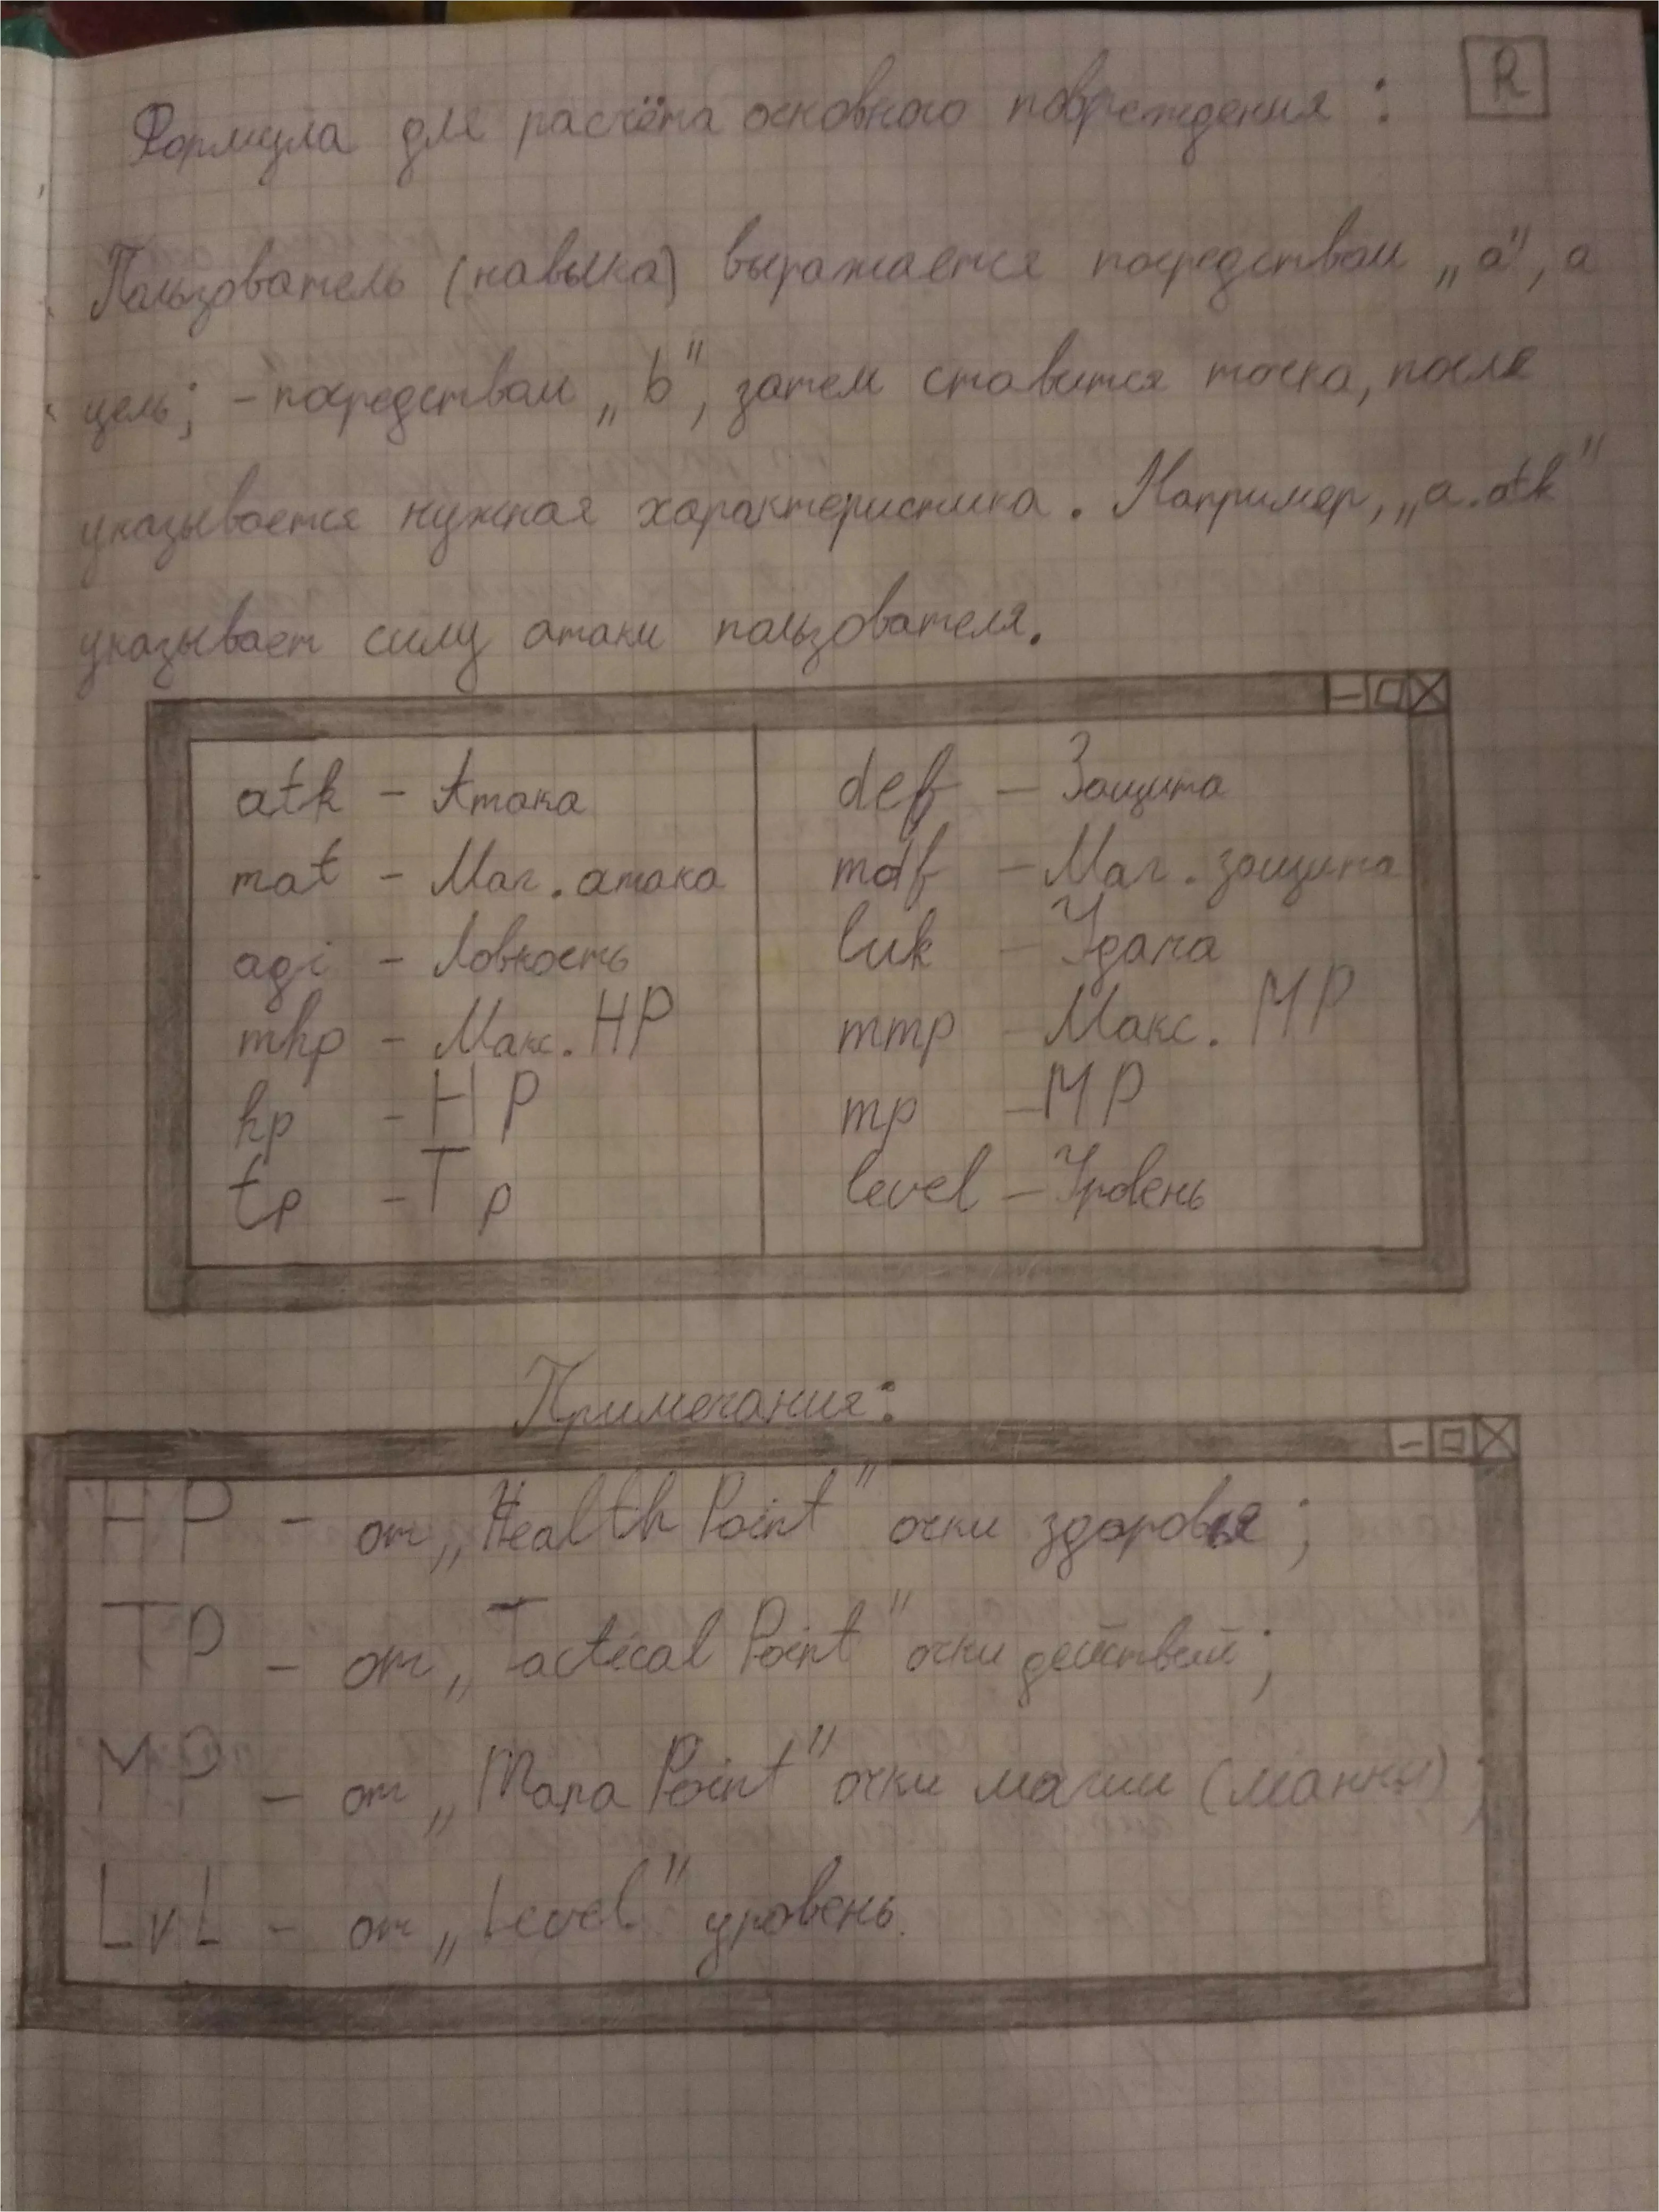 Формула для расчёта основного повреждения :
R
Пользователь (навыка) выражается посредством „а", а
цель; - посредством „b", затем ставится точка, после
указывается нужная характеристика. Например, „a.atk"
указывает силу атаки пользователя.
atk - Атака
def - Защита
mat - Маг. атака
mdf - Маг. защита
agi - Ловкость
luk - Удача
mhp - Макс. HP
mmp - Макс. MP
hp - HP
mp - MP
tp - Tp
level - Уровень
Примечания:
HP - от „Health Point" очки здоровья;
TP - от „Tactical Point" очки действий;
MP - от „Mana Point" очки магии (манны);
LvL - от „Level" уровень.